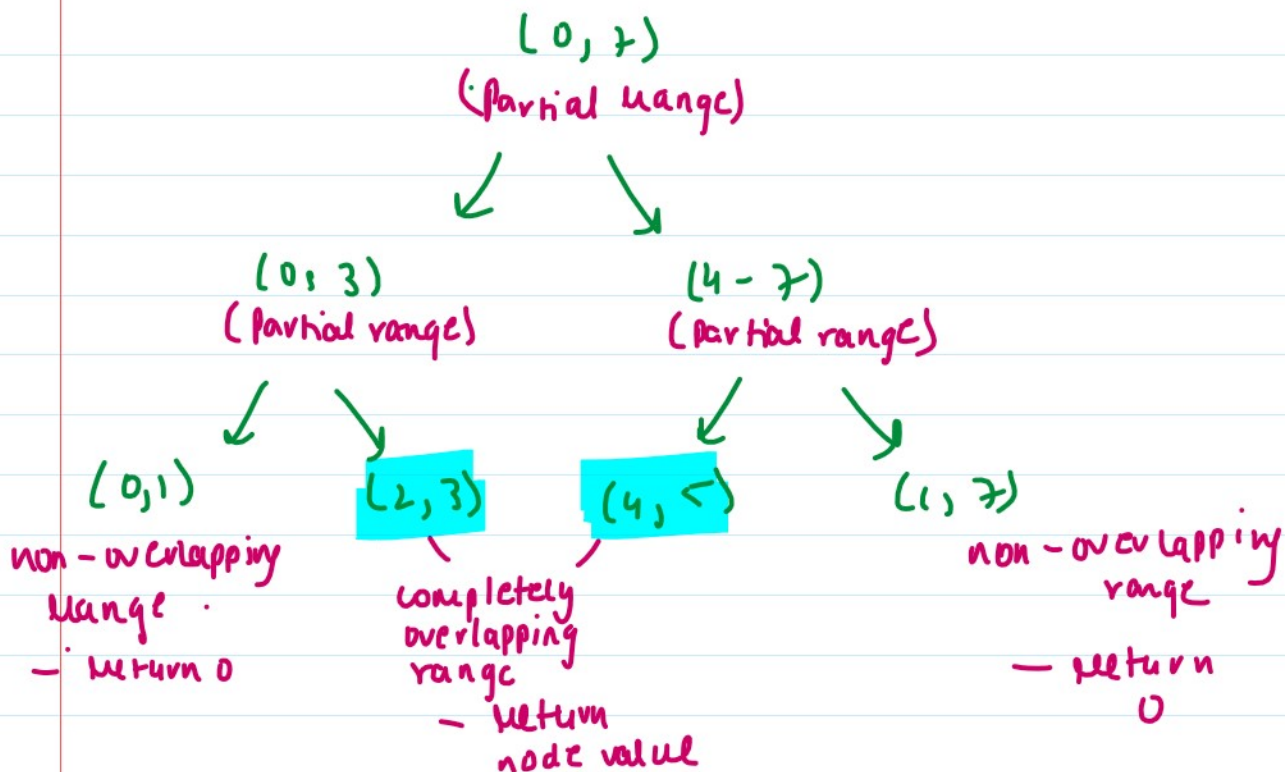 (0, 7)
(Partial range)
(0, 3)
(4 - 7)
(Partial range)
(partial range)
(0,1)
(2, 3)
(4, 5)
(6, 7)
non - overlapping
range
- return 0
completely
overlapping
range
- return
node value
non - overlapping
range
- return
0